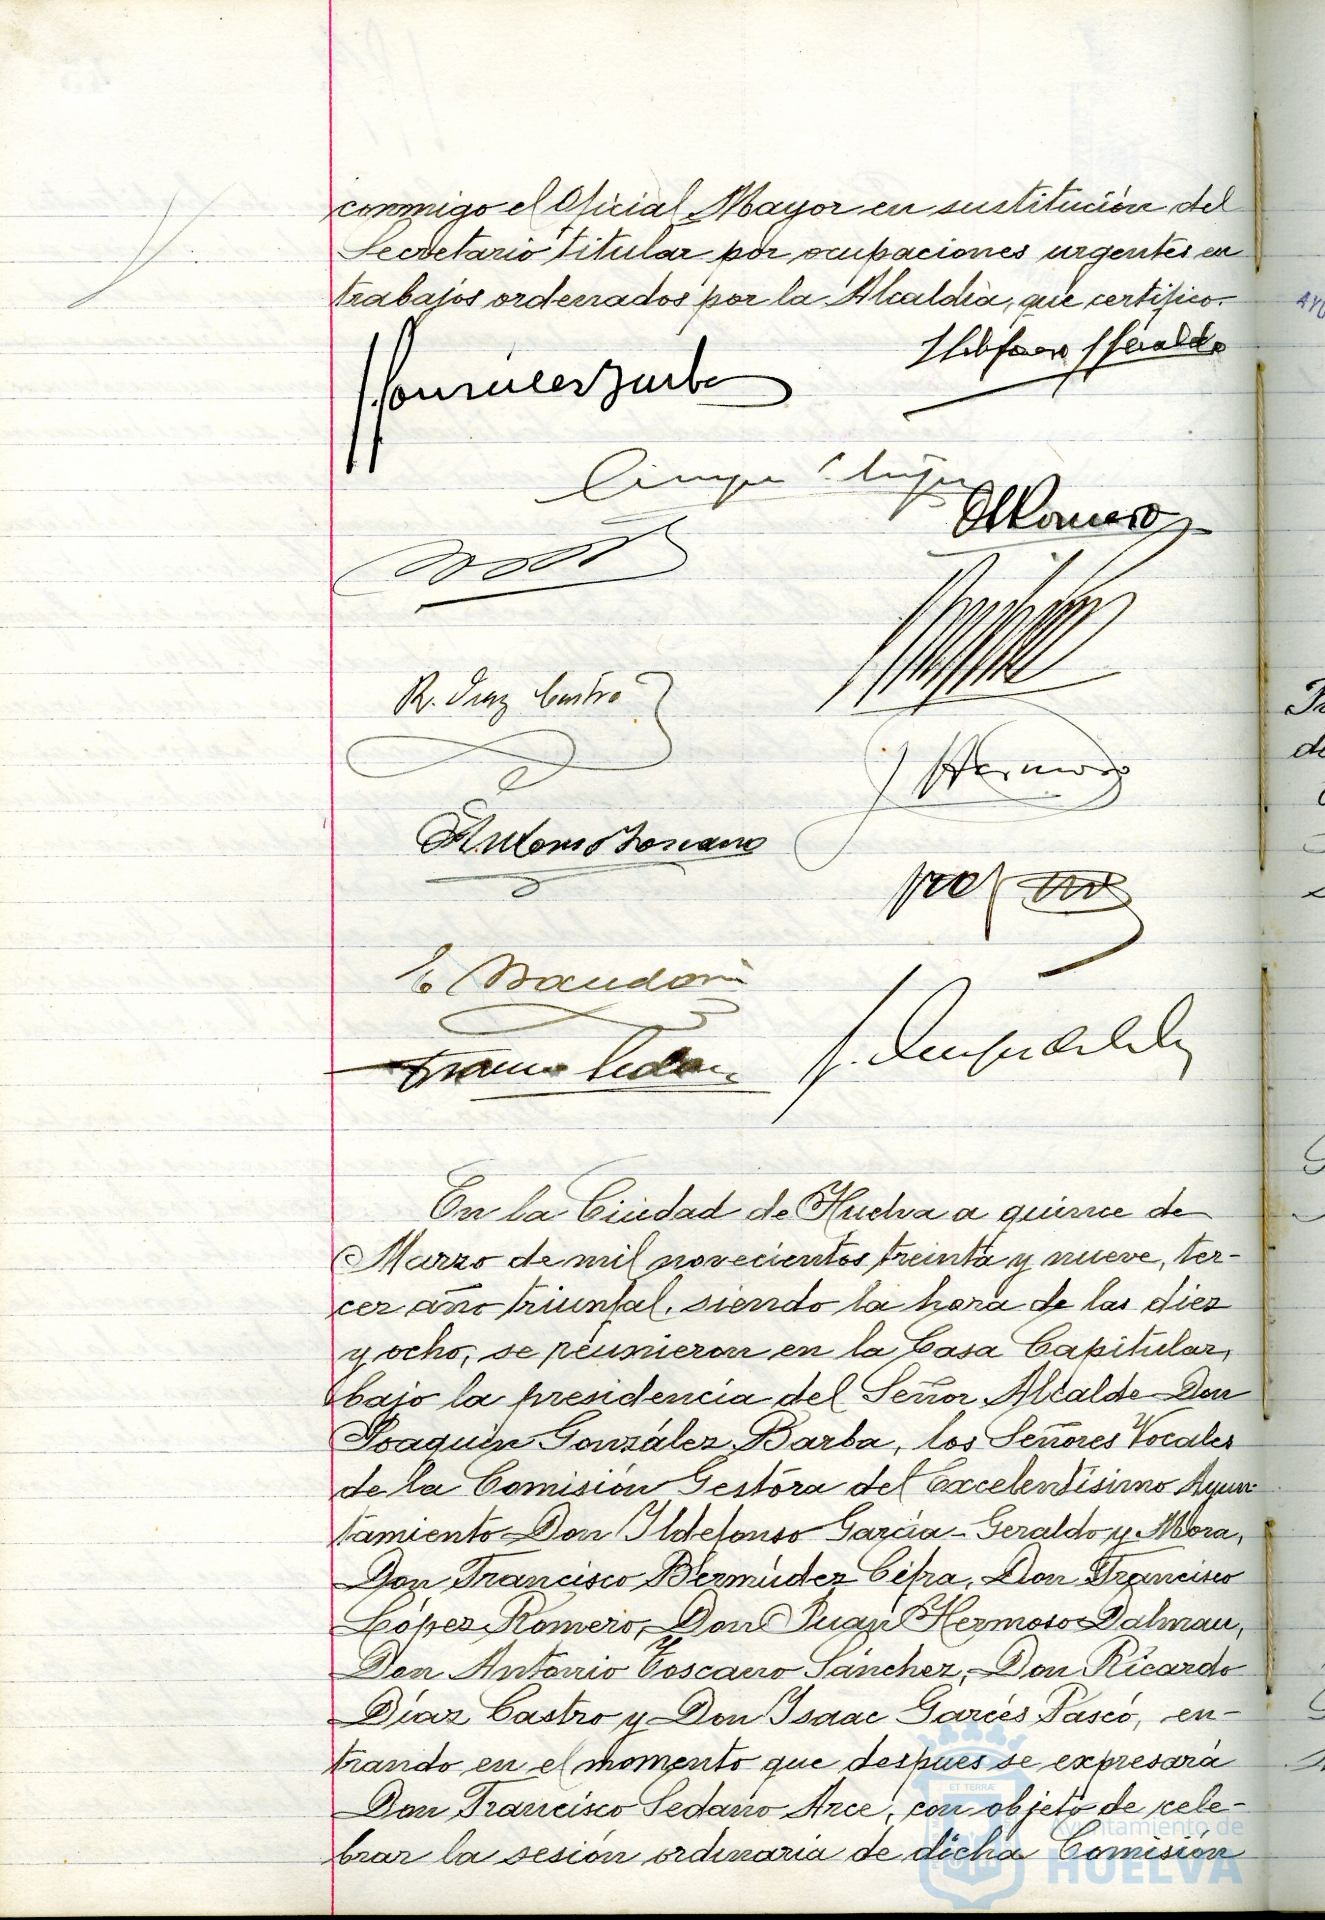 conmigo el Oficial Mayor en sustitución del
Secretario titular por ocupaciones urgentes en
trabajos ordenados por la Alcaldía, que certifico.
González Barba
Ildefonso Geraldo
Romero
R. Diaz Castro
J Hermoso
Antonio Toscano
Sedano
En la Ciudad de Huelva a quince de
Marzo de mil novecientos treinta y nueve, ter-
cer año triunfal, siendo la hora de las diez
y ocho, se reunieron en la Casa Capitular,
bajo la presidencia del Señor Alcalde Don
Joaquín González Barba, los Señores Vocales
de la Comisión Gestora del Excelentísimo Ayun-
tamiento Don Ildefonso García-Geraldo y Mora,
Don Francisco Bermúdez Cifra, Don Francisco
López Romero, Don Juan Hermoso Dalmau,
Don Antonio Toscano Sánchez, Don Ricardo
Díaz Castro y Don Isaac Garcés Pascó, en-
trando en el momento que despues se expresará
Don Francisco Sedano Arce, con objeto de cele-
brar la sesión ordinaria de dicha Comisión
ET TERRÆ
Ayuntamiento de
HUELVA